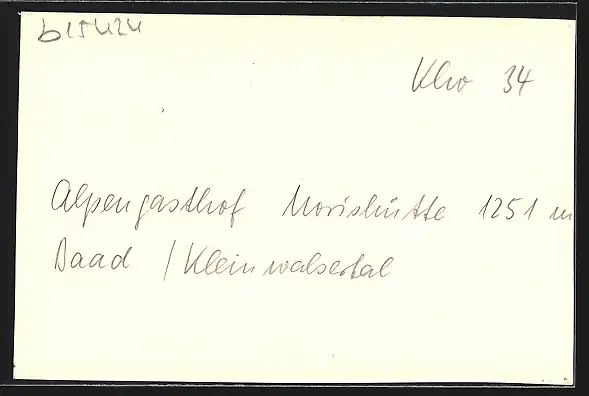 b15424
Klw 34
Alpengasthof Morishütte 1251 m
Baad / Kleinwalsertal